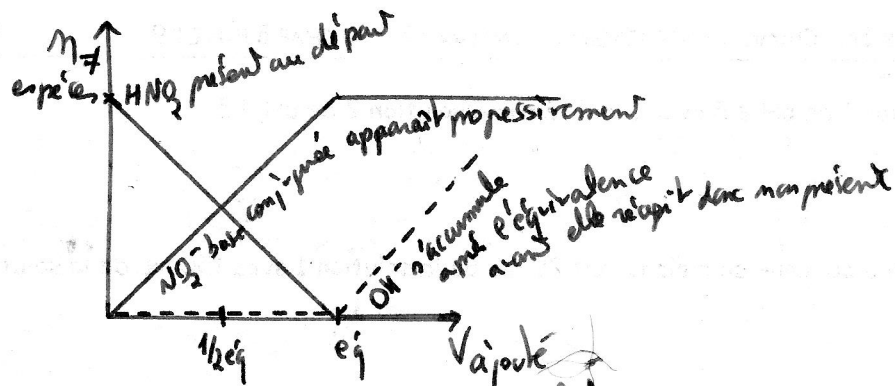 n≠
espèces
HNO2 présent au départ
NO2- base conjuguée apparaît progressivement
OH- s'accumule
après l'équivalence
avant elle réagit donc non présent
1/2 éq
éq
V ajouté